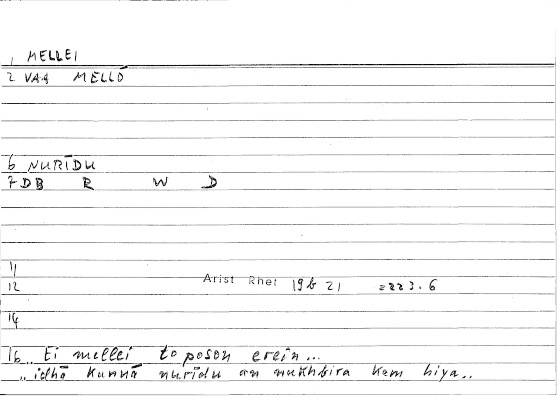 1 MELLEI
2 VAA MELLŌ
6 NURĪDU
7 DB R W D
11
12 Arist Rhet 19b 21 = 223.6
14
16 .. Ei mellei to poson erein...
.. idhā kunnā nurīdu an nukhbira kem hiya..